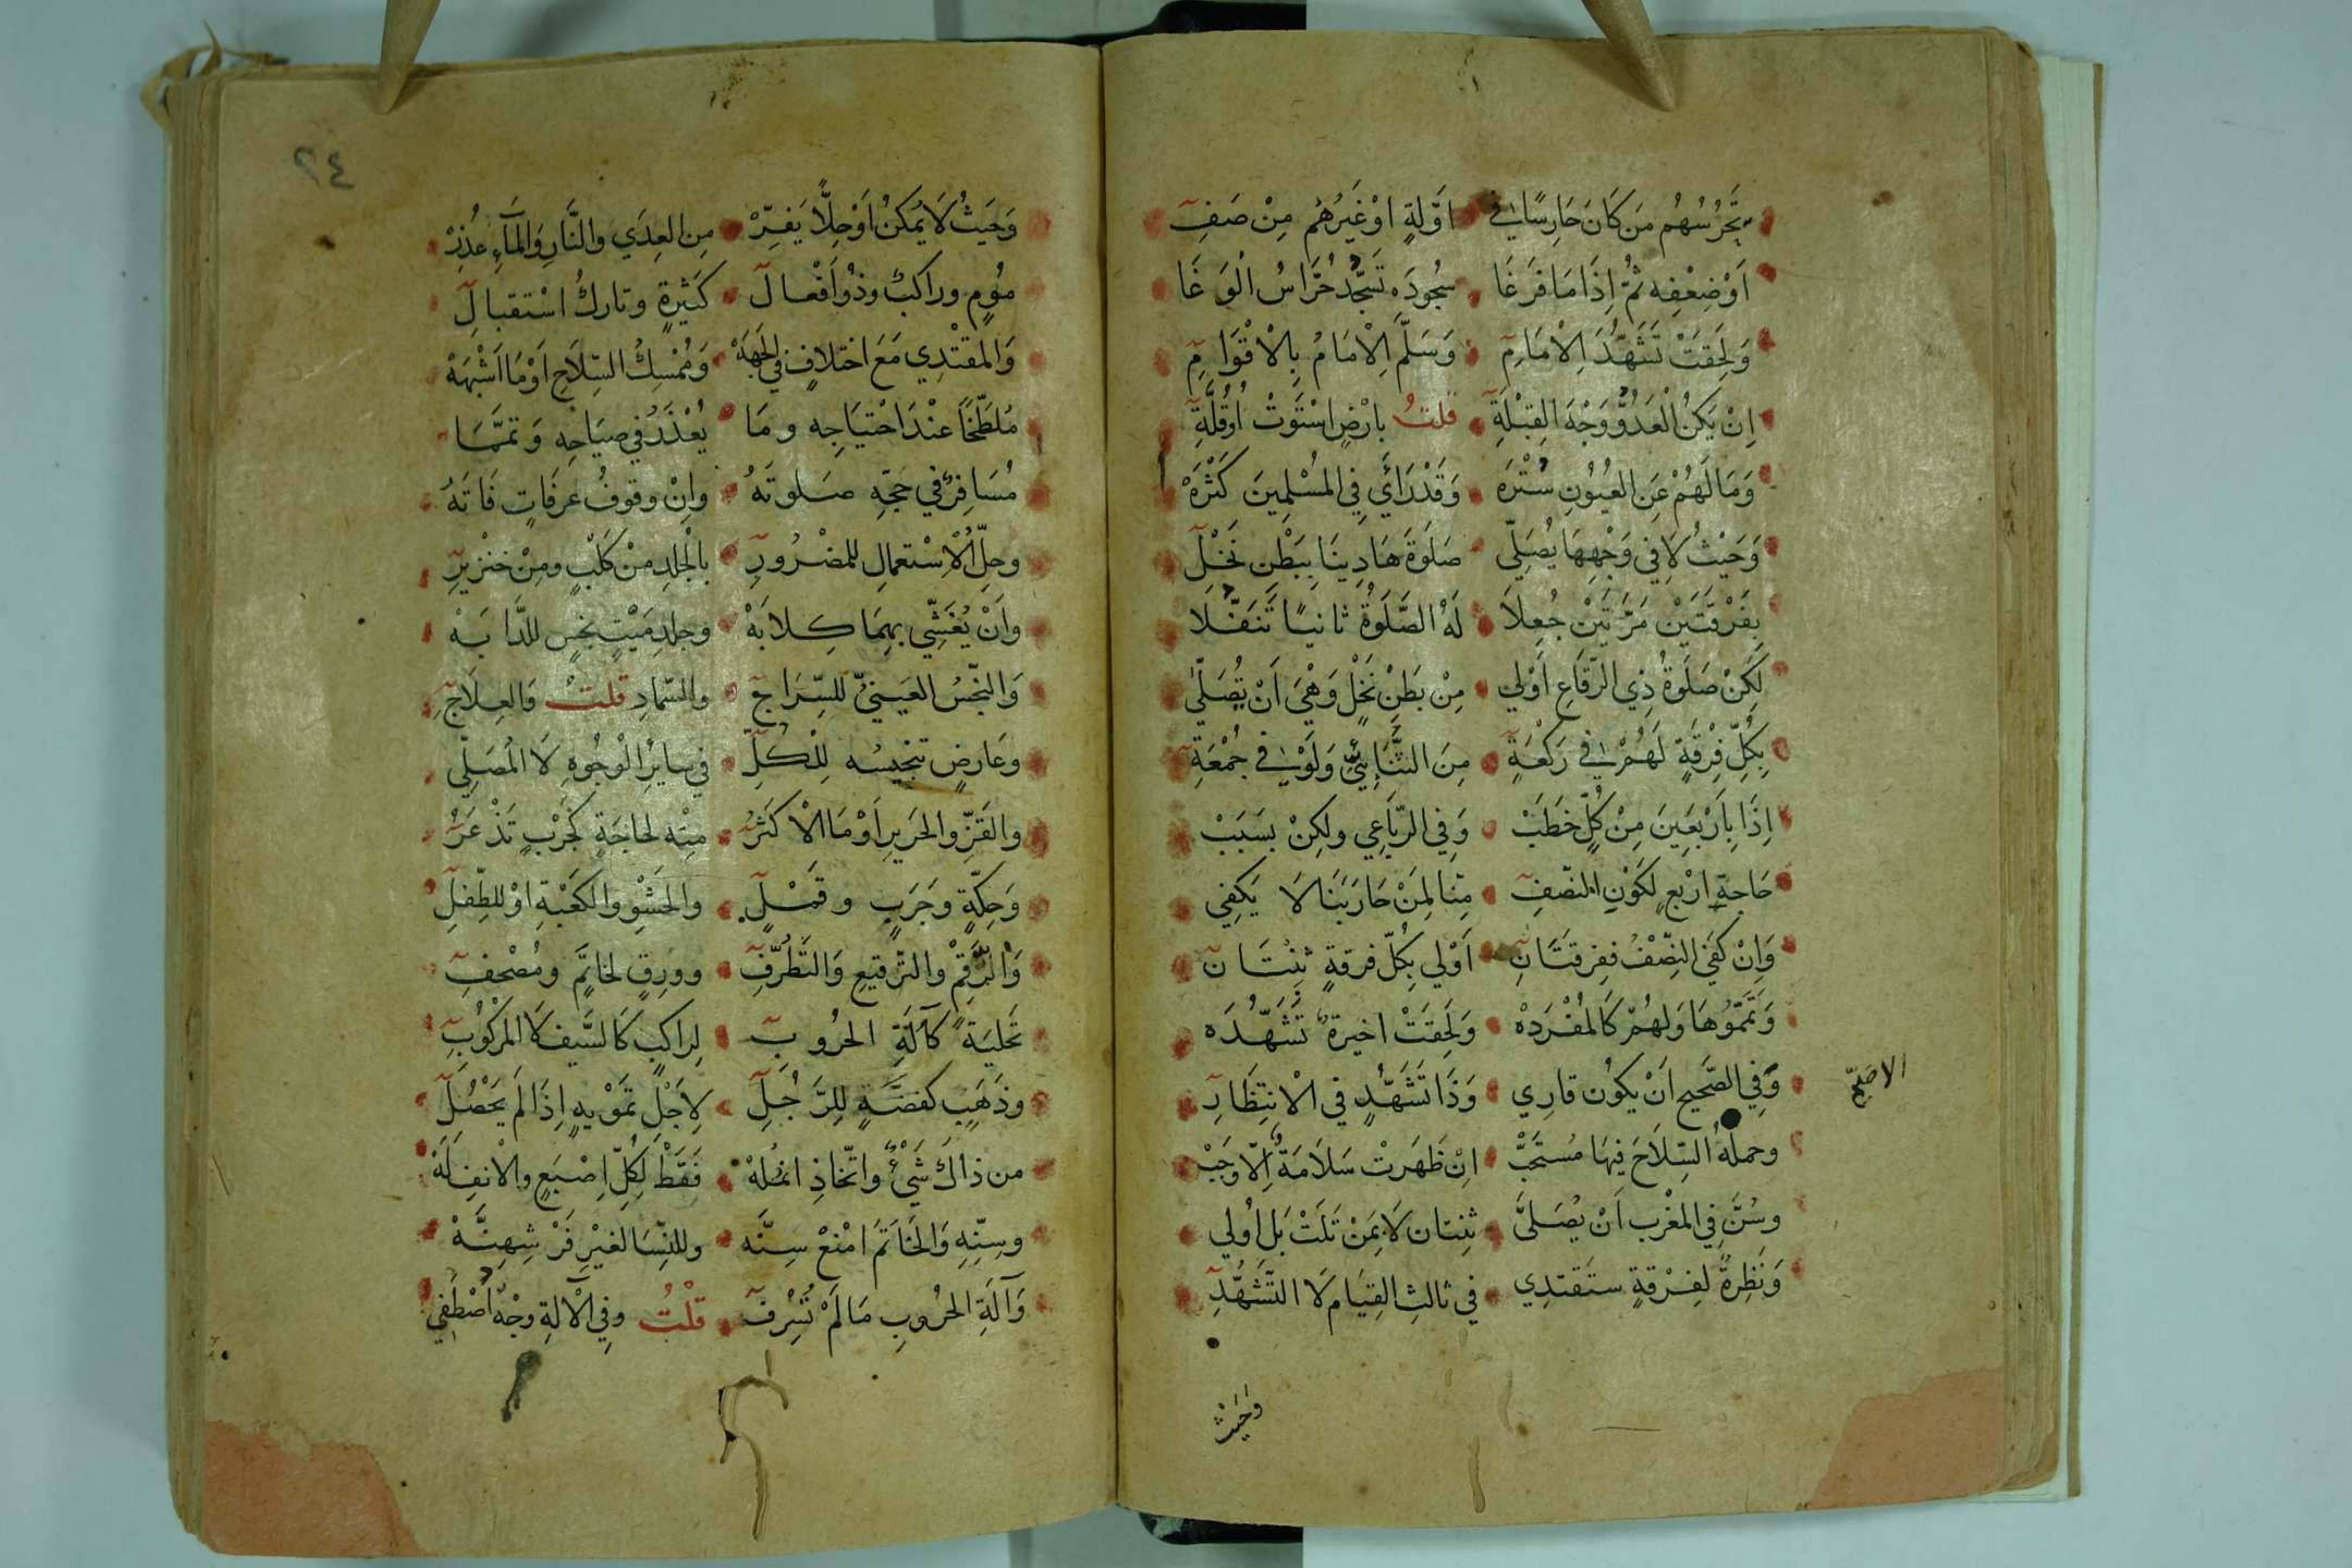 يَحْرُسُهُم مَن كَانَ حَارِسًا فِي اَوَّلَةٍ اَوْ غَيْرُهُمْ مِنْ صَفِّ
اَوْ ضِعْفِهِ ثُمَّ اِذَا مَا فَرَغَا سُجُودَه تَسْجُدُ حُرَّاسُ الْوَغَا
وَلَحِقَتْ تَشَهُّدَ الْاِمَامِ وَسَلَّمَ الْاِمَامُ بِالْاَقْوَامِ
اِنْ يَكُنُ الْعَدُوُّ وَجْهَ القِبْلَةِ قلتُ بارْضٍ اسْتَوَتْ اَوْ قُلَّةِ
وَمَا لَهُمْ عَنِ العُيُونِ سُتْرَه وَقَدْ رَأَي فِي المُسْلِمِينَ كَثْرَهْ
وَحَيْثُ لَا فِي وَجْهِهَا يُصَلِّي صَلوٰةَ هَادِينَا بِبَطْنِ نَخْلِ
بِفَرْقَتَيْنِ مَرَّتَيْنِ جُعِلَا لَهُ الصَّلَوةُ ثانيًا تَنَفُّلا
لَكِنْ صَلَوةُ ذِي الرِّقَاعِ اَوْلي مِنْ بَطْنِ نَخْلٍ وَهْيَ اَنْ يُصَلّيٰ
بِكُلِّ فِرْقَةٍ لَهُمْ فِي رَكْعَةِ مِنَ الثُّنَائِيِّ وَلَوْ فِي جُمْعَةِ
اِذَا بِاَرْبَعِينَ مِنْ كُلٍّ خَطَبْ وَفِي الرُّبَاعِي ولكِنْ بسَبَبْ
حَاجَةِ ارْبَعٍ لِكَوْنِ النصْفِ مِنّا لِمَنْ حَارَبَنَا لَا يَكفِي
وَاِنْ كَفَي النِّصْفُ فَفِرقَتَانِ اَوْلي بِكُلّ فرقةٍ ثِنْتَانِ
وَتَمَّمُوهَا وَلهُمْ كَالمُفْرَدهْ وَلَحِقَتْ اخيرةٌ تَشَهُّدَه
وَفِي الصَّحيحِ اَنْ يكوُن قارِي وَذَا تَشَهُّدٍ في الْانتِظَارِ
الاصَحّ
وحملُهُ السِّلَاحَ فِيهَا مُستَحَبّْ اِنْ ظَهَرتْ سَلَامَةٌ اِلّا وَجَبْ
وسُنَّ فِي المَغْرِب اَنْ يُصَلَّيَ ثِنتان لَا بِمَنْ تَلَتْ بَلْ اُولي
وَنَظِرةً لِفِرْقةٍ ستَقتدِي في ثالثِ القِيَامِ لَا التَّشَهُّدِ
وَحَيْثُ
٢٤
وَحَيثُ لَا يُمكِنُ اَوْ حِلًّا يَفِرّْ مِن العِدَي والنَّارِ وَالمَآءِ عُذِرْ
مُومٍ وراكبٌ وذُو اَفْعالِ كَثيرَةٍ وتارِكُ اسْتقبالِ
وَالمقْتدِي مَعَ اختلافٍ فِي الجِهَهْ وَمُمْسِكُ السِّلَاحِ اَوْ مَا اَشْبَهَهْ
مُلَطَّخًا عنْدَ احْتيَاجِهِ ومَا يُعْذَرُ في صيَاحِهِ وَتمَّمَا
مُسَافِرٌ في حَجّهِ صَلوتَهُ وانْ وقوفُ عرفَاتٍ فَاتَهُ
وحِلُّ الاسْتعمَالِ للمضْرُورِ بالْجِلدِ منْ كَلْبٍ ومِنْ خنْزيرِ
واَنْ يُغَشِّي بهِمَا كِلابَهْ وجلدِ مَيْتٍ نَجِسٍ للدَّابَهْ
وَالنّجَسُ العَينيُّ للسِّرَاجِ والسّمادِ قلتُ وَالعِلَاجِ
وعَارِضٍ تنجيسُه لِلْكُلِّ في سايرِ الْوُجُوهِ لَا المُصَلِّي
والقَزِّ والحَريرِ اَوْ مَا الاكثَرُ مِنْه لحاجَةٍ كحَرْبٍ تَذْعَرُ
وَحِكّةٍ وجَرَبٍ وقَمْلٍ والحَشْوِ والكَعْبةِ اوْ للطِّفلِ
وَالرَّقمْ والترْقيعِ وَالتَطَرُّفِ وورِقٍ لخاتَمٍ ومُصْحفِ
تَحليَةً كآلَةِ الحُروبِ لِراكبٍ كَالسَّيف لَا المرْكُوبِ
وذَهَبٍ كفضَّةٍ لِلرَّجُلِ لِاَجْلِ تَمَوْيهٍ اِذَا لَم يَحْصُلِ
من ذاكَ شَيْءٌ واتّخاذِ انمُلهْ فَقَطْ لِكُلِّ اِصْبَعٍ والانفِ لَهْ
وسِنِّهِ وَالخَاتَمَ امْنعْ سِنَّه وللنِّسَا لغيْرِ فَرْشِهِنَّهْ
وَآلَةِ الحُروبِ مَا لَمْ تُسْرِفِ قلْتُ وفِي الْآلةِ وجْهٌ اصْطُفِي